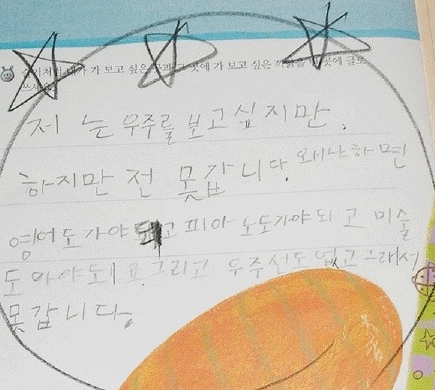 가 보고 싶은 곳에 가 보고 싶은 까닭을 곳에 글로
저 는 우주를 보고싶지만,
하지만 전 못갑니다. 왜냐하면
영어도가야 되고 피아노도가야되고 미술
도 마야도 그리고 우주신도 없고 그래서
못갑니다.